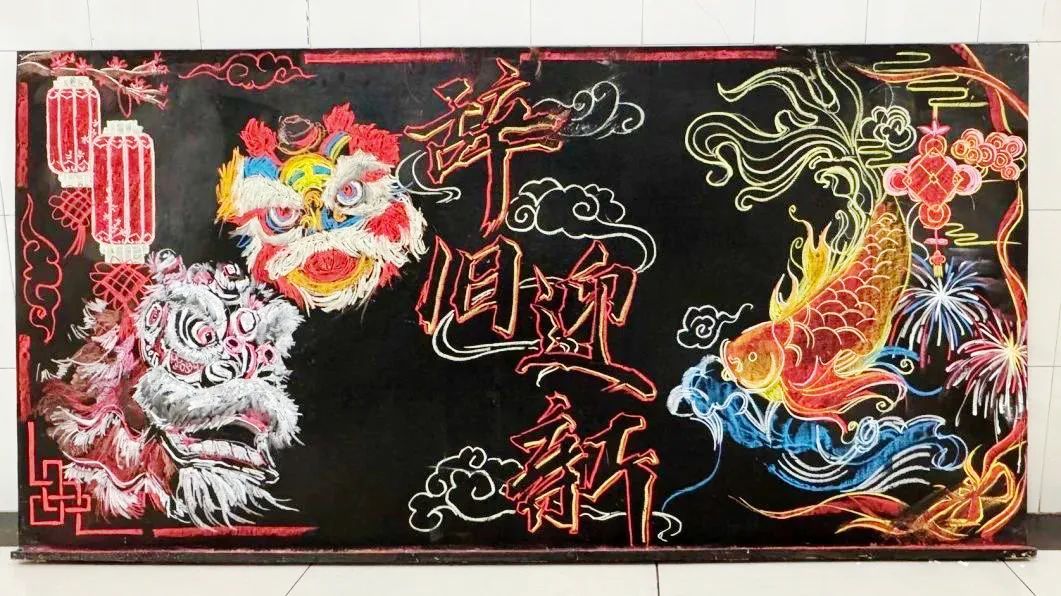 辞
旧迎
新